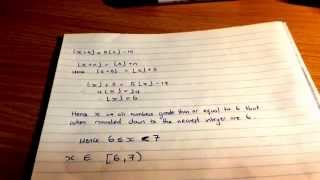 ⌊x+5⌋ = 5⌊x⌋ - 19
⌊x+n⌋ = ⌊x⌋ + n
⌊x+5⌋ = ⌊x⌋ + 5
⌊x⌋ + 5 = 5⌊x⌋ - 19
4⌊x⌋ = 24
⌊x⌋ = 6
Hence x is all numbers greater than or equal to 6 that
when rounded down to the nearest integer are 6.
Hence 6 ≤ x < 7
x ∈ [6,7)